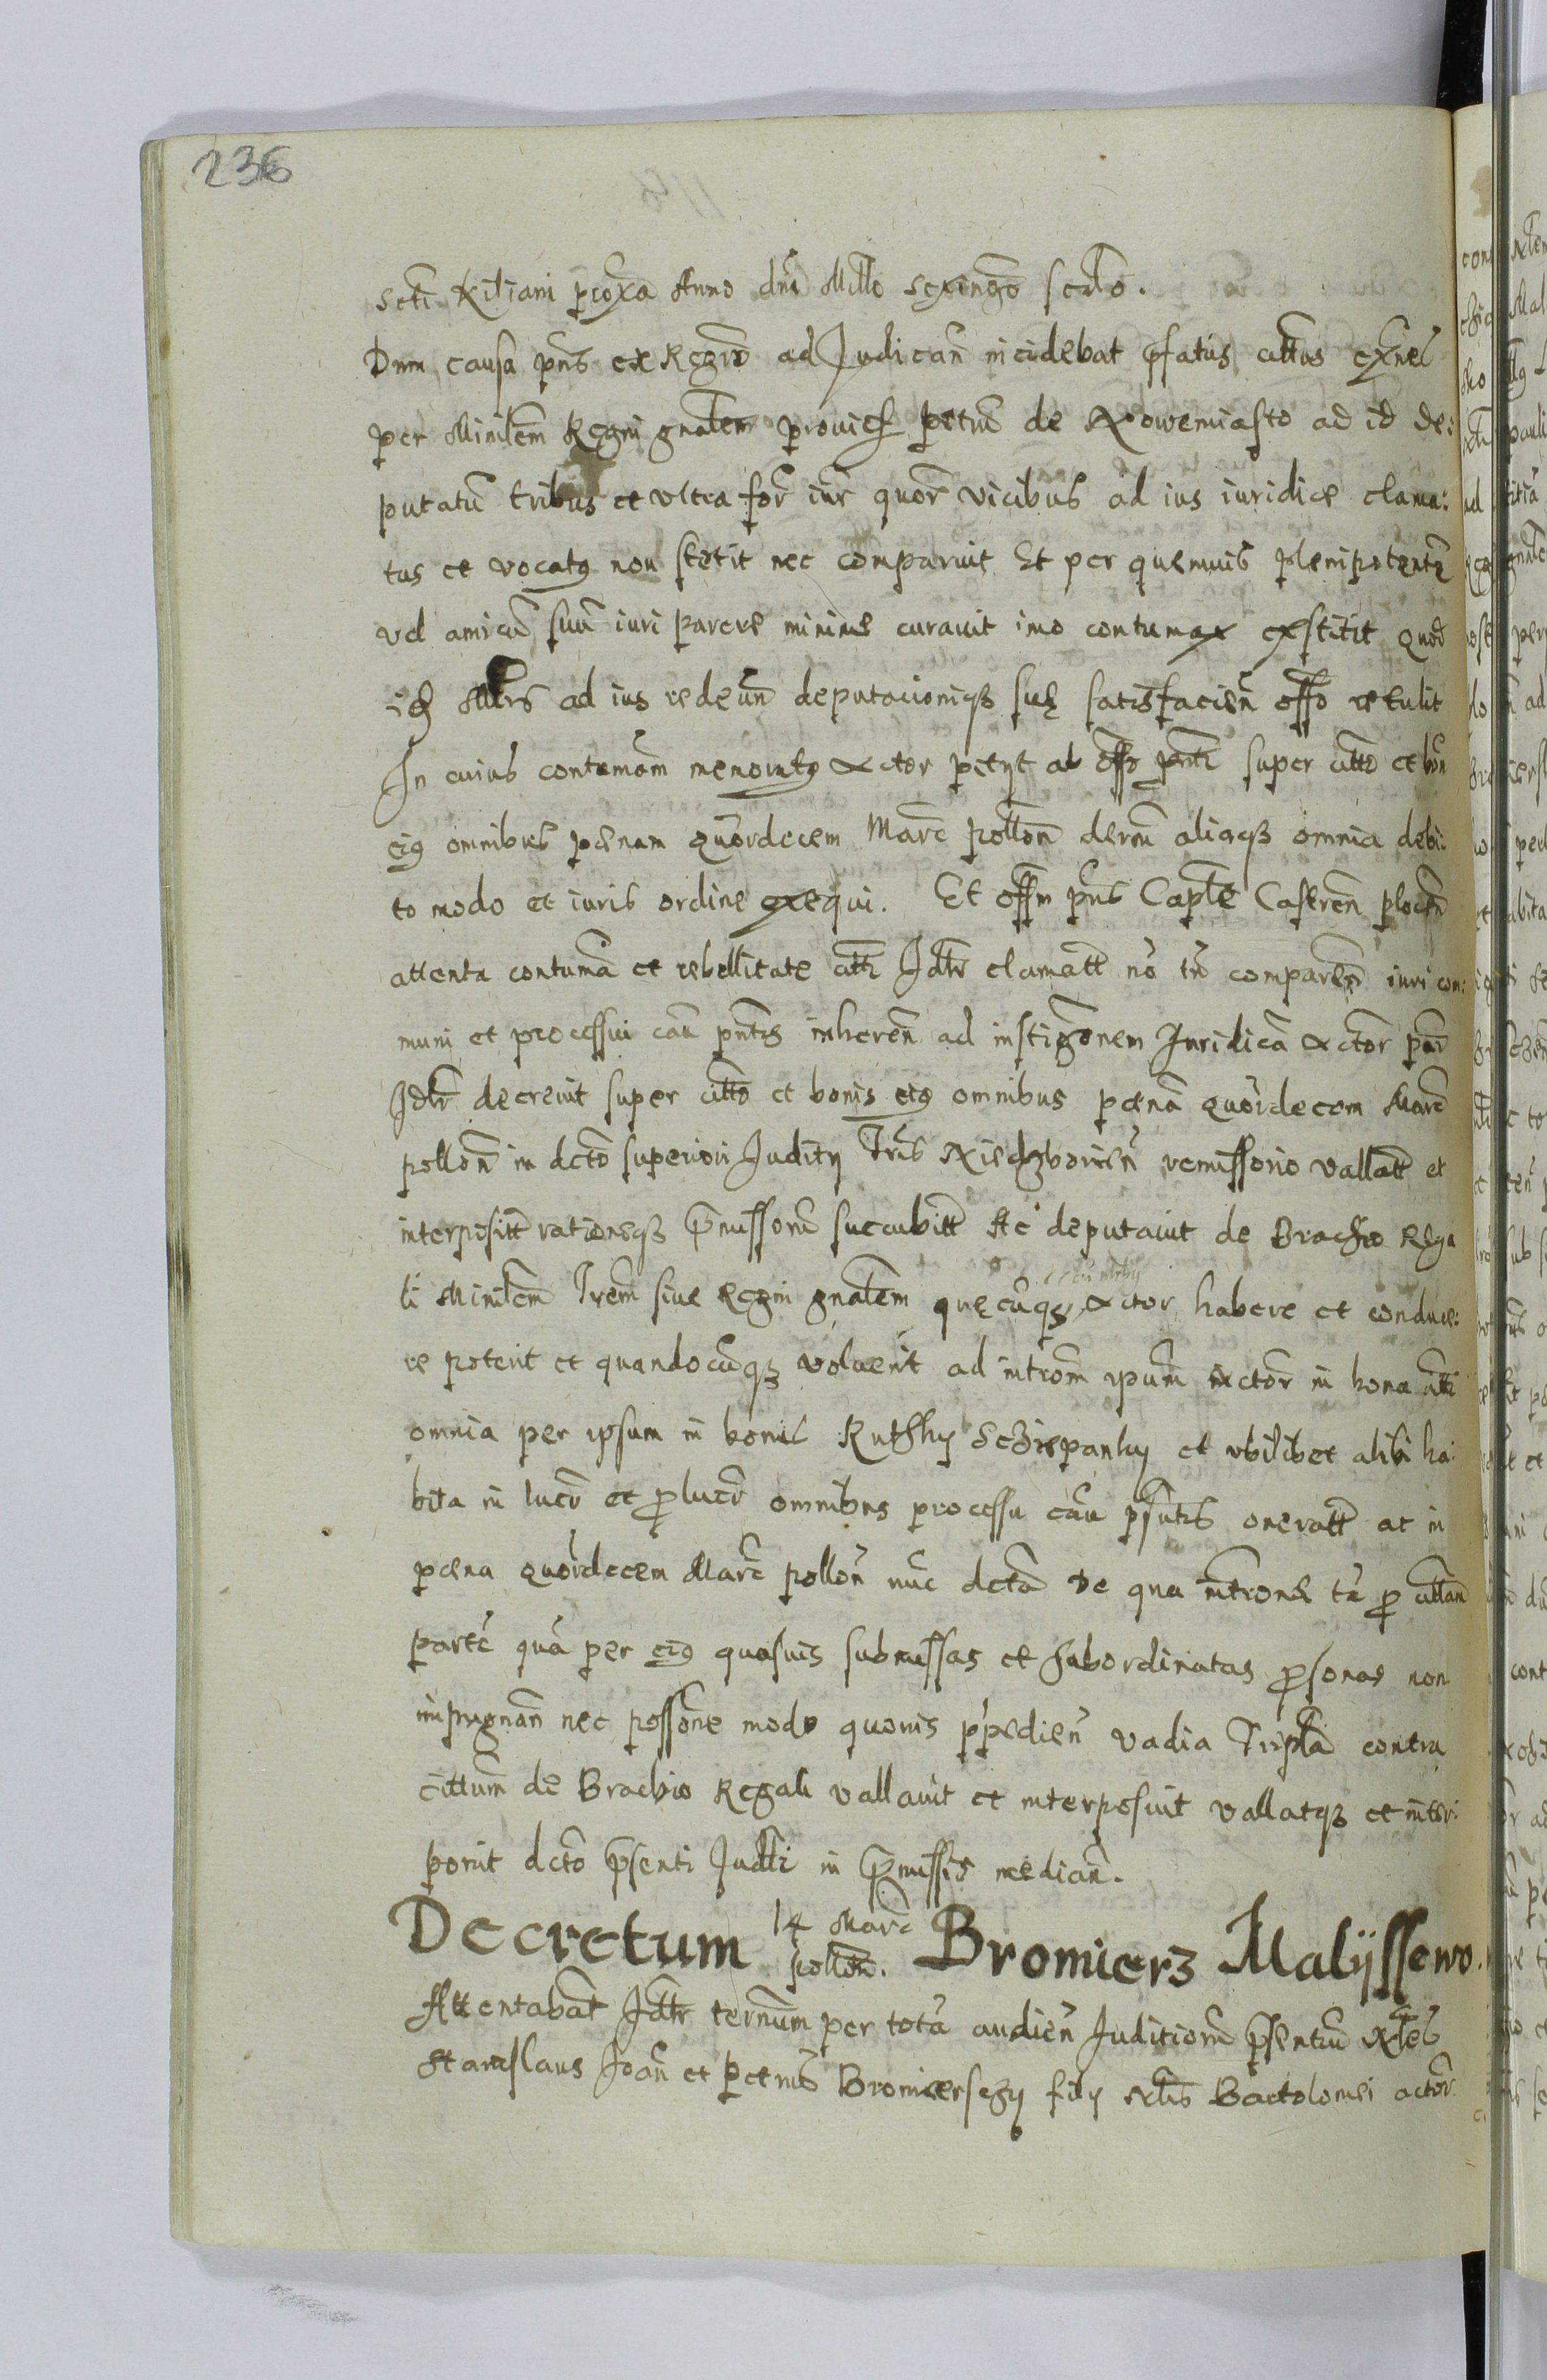 236
Scti Kiliani proxa Anno dni Mlllo sexingo scdo.
Dum causa pns ex Regro ad Judican incidebat pfatus cittus
per Minilem Regni gnalem prouid petrum de Nowemiasto ad id de:
putatu tribus et vltra for iur quor vicibus ad ius iuridice clama:
tus et vocatq non stetit nec comparuit Et per quemuis plenipotente
vel amicu suu iuri parere minime curauit imo contumax exstitit quod
ad ius redeun deputacioniqz suę satisfacien offo retulit
In cuius contumam memoratq Actor petyt ab offo pnti super citto et bon
eiq omnibus pœnam quordecem Marc pollon decerni aliaqz omnia debi:
to modo et iuris ordine exequi. Et offm pns Caple Castren plocen
attenta contuma et rebellitate citti Jdtr clamatt no tn comparen iuri com:
muni et processui cau pntis inheren ad instigonem Juridica Actor
Jdtr decreuit super citto et bonis eiq omnibus pœna quordecem Marc
pollon in dcto superiori Judity Tris Miedzborien remissorio vallatt et
interpositt rationeqz pmissoru succubitt Ac deputauit de Brachio Rega
li Minilem Trem siue Regni gnalem quecuqz Actor habere et conduce:
re poterit et quandocuqz voluerit ad introm ipum Actor in bona citti
omnia per ipsum in bonis Ruthky Sczepanky et vbilibet alibi ha:
bita in lucr et plucr omnibus processu cau psntis oneratt ac in
pœna quordecem Marc pollon nuc dcta de qua introne ta p cittam
parte qua per eiq quosuis submissas et subordinatas psonas non
impugnan nec possone modo quouis ppedien vadia Tripla contra
cittum de Brachio Regali vallauit et interposuit vallatqz et inter:
ponit dcto psenti Judtr in pmissis median.
Decretum 14 Marc pollon. Bromierz Malÿssewo.
Attentabat Jdtr ternum per tota audien Juditioru psentiu Nbles
Stanislaus Joan et petrus Bromiersczy fily Nblis Bartolomei actor